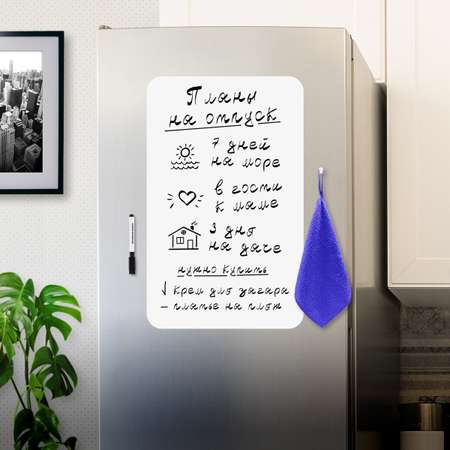 Планы
на отпуск
7 дней
на море
в гости
к маме
3 дня
на даче
нужно купить
√ крем для загара
– платье на пляж